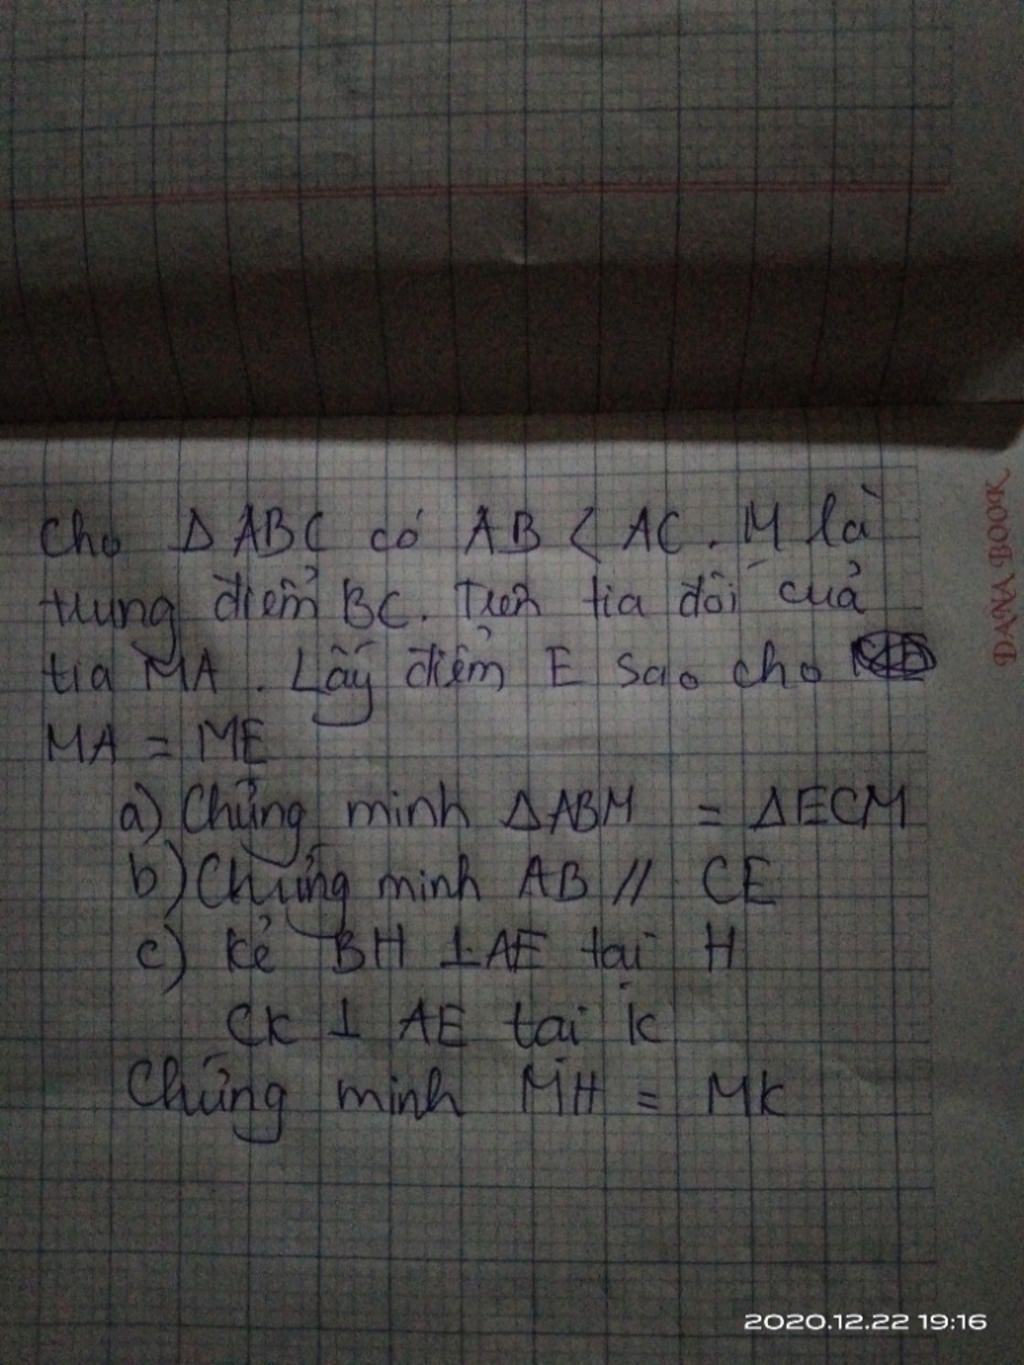 Cho Δ ABC có AB < AC. M là
trung điểm BC. Trên tia đối của
tia MA. Lấy điểm E sao cho
MA = ME
a) Chứng minh ΔABM = ΔECM
b) Chứng minh AB // CE
c) Kẻ BH ⊥ AE tại H
CK ⊥ AE tại K
Chứng minh MH = MK
DANA BOOK
2020.12.22 19:16